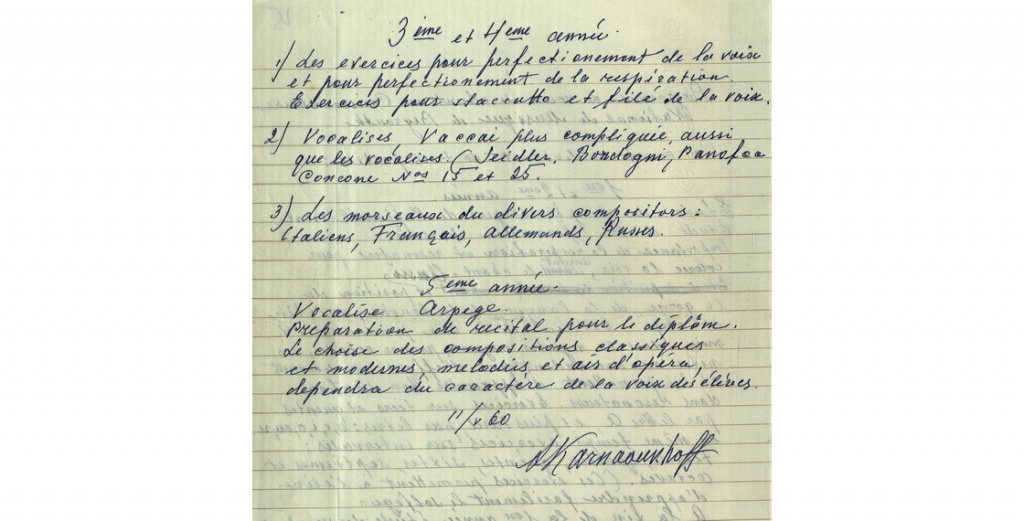 3ème et 4ème année.
1) Les exercices pour perfectionement de la voix
et pour perfectionement de la respiration.
Exercices pour staccatto et filé de la voix.
2) Vocalises, Vaccai plus compliquée aussi
que les vocalises (Seidler, Bordogni, Panofca
Concone Nos 15 et 25.
3) Les morseaux du divers compositors:
Italiens, Français, Allemands, Russes.
5ème année.
Vocalise Arpege.
Preparation de recital pour le diplôm.
Le choise des compositions classiques
et modernes, melodies et air d'opéra,
dependra du caractére de la voix des élèves.
11/X 60
A Karnaoukhoff